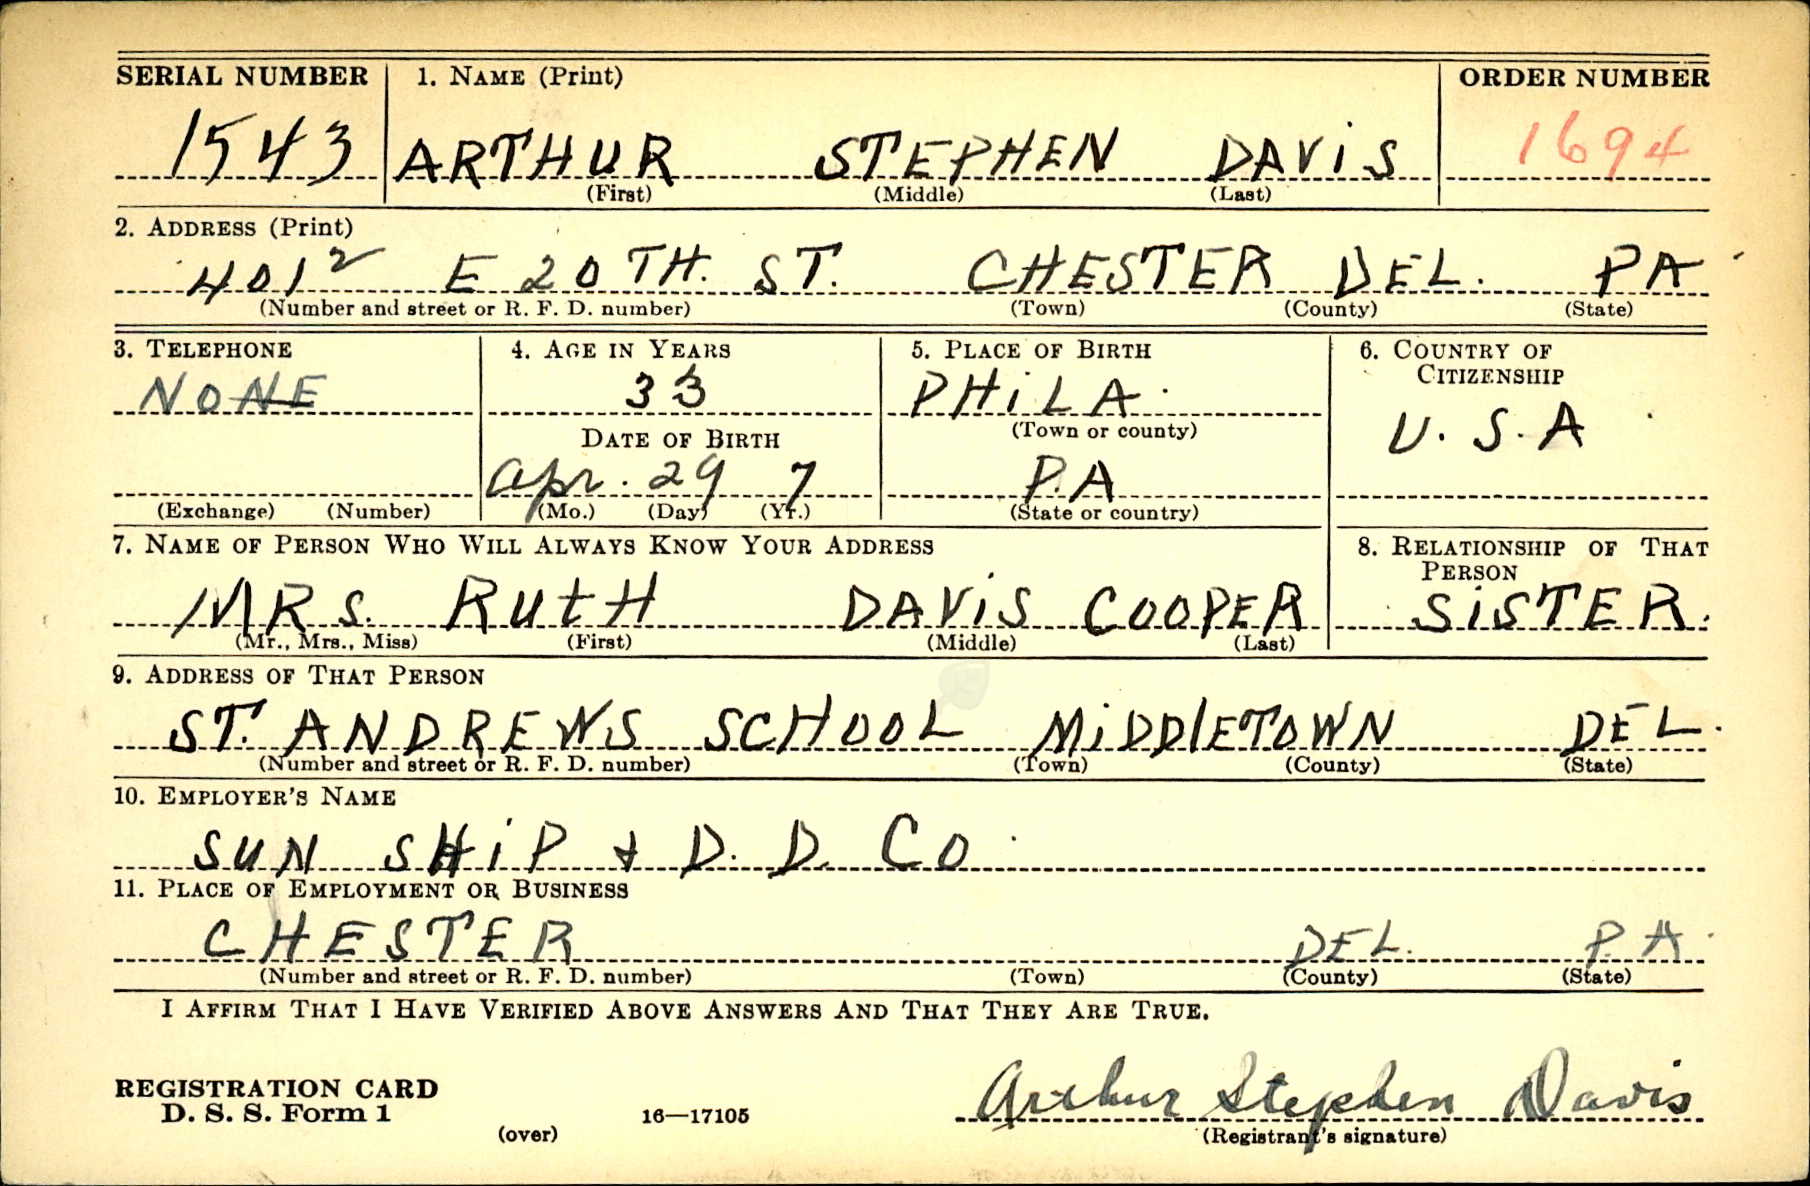 SERIAL NUMBER 1. NAME (Print) ORDER NUMBER
1543 ARTHUR STEPHEN DAViS 1694
(First) (Middle) (Last)
2. ADDRESS (Print)
401 2 E 20TH. ST. CHESTER DEL. PA
(Number and street or R. F. D. number) (Town) (County) (State)
3. TELEPHONE 4. AGE IN YEARS 5. PLACE OF BIRTH 6. COUNTRY OF CITIZENSHIP
NONE 33 PHiLA. U. S. A
DATE OF BIRTH (Town or county)
Apr. 29 7 P.A
(Exchange) (Number) (Mo.) (Day) (Yr.) (State or country)
7. NAME OF PERSON WHO WILL ALWAYS KNOW YOUR ADDRESS 8. RELATIONSHIP OF THAT PERSON
MRS. RutH DAViS COOPER SiSTER.
(Mr., Mrs., Miss) (First) (Middle) (Last)
9. ADDRESS OF THAT PERSON
ST. ANDREWS SCHOOL MiDDlETOWN DEL.
(Number and street or R. F. D. number) (Town) (County) (State)
10. EMPLOYER'S NAME
SUN SHiP & D. D. CO.
11. PLACE OF EMPLOYMENT OR BUSINESS
CHESTER DEL. P.A.
(Number and street or R. F. D. number) (Town) (County) (State)
I AFFIRM THAT I HAVE VERIFIED ABOVE ANSWERS AND THAT THEY ARE TRUE.
REGISTRATION CARD
D. S. S. Form 1 16—17105 Arthur Stephen Davis
(over) (Registrant's signature)